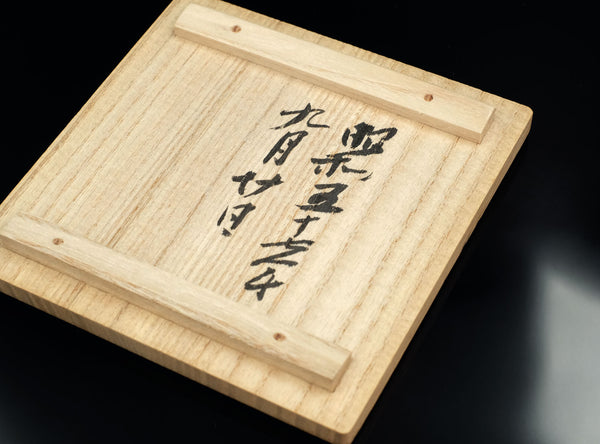 昭和五十六年
九月廿日